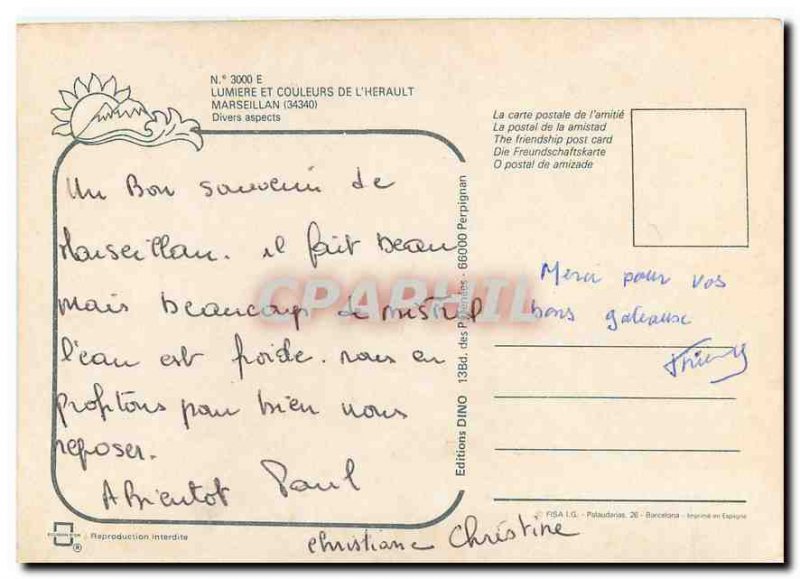 N.° 3000 E
LUMIERE ET COULEURS DE L'HERAULT
MARSEILLAN (34340)
Divers aspects
La carte postale de l'amitié
La postal de la amistad
The friendship post card
Die Freundschaftskarte
O postal de amizade
Un Bon souvenir de
Marseillan. il fait beau
mais beaucoup de mistral
l'eau est froide. nous en
profitons pour bien nous
reposer.
A Bientot Paul
christiane Christine
Editions DINO 13Bd. des Pyrénées - 66000 Perpignan
Merci pour vos
bons gateaux
Thierry
CPAPHIL
© FISA I.G. - Palaudarias, 26 - Barcelona - Imprimé en Espagne
® Reproduction interdite